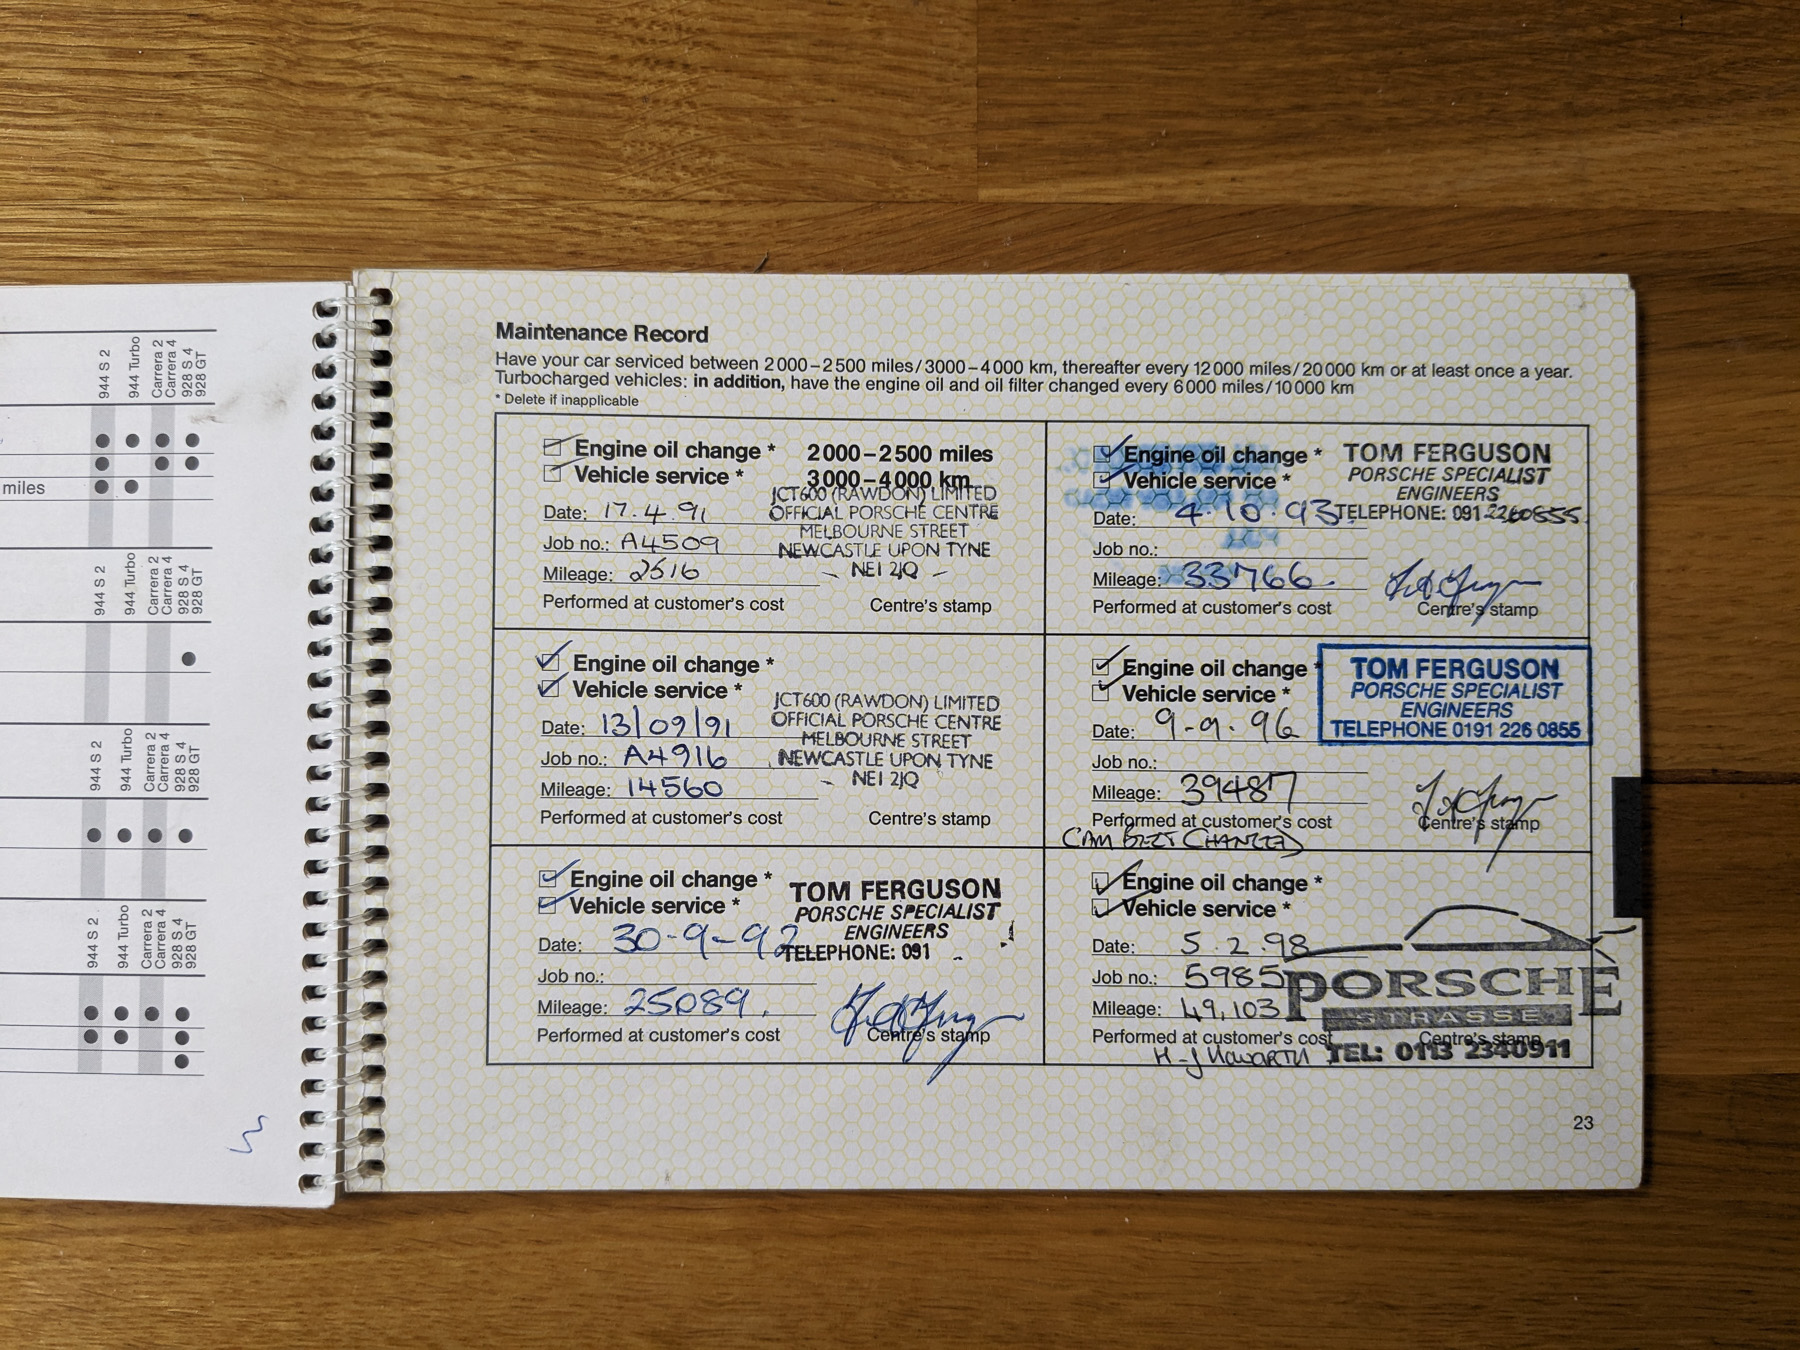 944 S 2
944 Turbo
Carrera 2
Carrera 4
928 S 4
928 GT
miles
944 S 2
944 Turbo
Carrera 2
Carrera 4
928 S 4
928 GT
944 S 2
944 Turbo
Carrera 2
Carrera 4
928 S 4
928 GT
944 S 2
944 Turbo
Carrera 2
Carrera 4
928 S 4
928 GT
Maintenance Record
Have your car serviced between 2000–2500 miles/3000–4000 km, thereafter every 12000 miles/20000 km or at least once a year.
Turbocharged vehicles: in addition, have the engine oil and oil filter changed every 6000 miles/10000 km
* Delete if inapplicable
Engine oil change * 2000–2500 miles
Vehicle service * 3000–4000 km
JCT600 (RAWDON) LIMITED
OFFICIAL PORSCHE CENTRE
MELBOURNE STREET
NEWCASTLE UPON TYNE
NE1 2JQ
Date: 17.4.91
Job no.: A4509
Mileage: 2516
Performed at customer's cost Centre's stamp
Engine oil change *
Vehicle service *
JCT600 (RAWDON) LIMITED
OFFICIAL PORSCHE CENTRE
MELBOURNE STREET
NEWCASTLE UPON TYNE
NE1 2JQ
Date: 13/09/91
Job no.: A4916
Mileage: 14560
Performed at customer's cost Centre's stamp
Engine oil change *
Vehicle service *
TOM FERGUSON
PORSCHE SPECIALIST
ENGINEERS
TELEPHONE: 091
Date: 30-9-92
Job no.:
Mileage: 25089.
Performed at customer's cost Centre's stamp
Engine oil change *
Vehicle service *
TOM FERGUSON
PORSCHE SPECIALIST
ENGINEERS
TELEPHONE: 091 2260855
Date: 4.10.93
Job no.:
Mileage: 33766.
Performed at customer's cost Centre's stamp
Engine oil change *
Vehicle service *
TOM FERGUSON
PORSCHE SPECIALIST
ENGINEERS
TELEPHONE 0191 226 0855
Date: 9-9-96
Job no.:
Mileage: 39487
Performed at customer's cost Centre's stamp
CAM BELT CHANGED
Engine oil change *
Vehicle service *
Date: 5.2.98
Job no.: 5985
Mileage: 49,103
PORSCHE
STRASSE
Performed at customer's cost Centre's stamp
H-J HOWARTH TEL: 0113 2340911
23